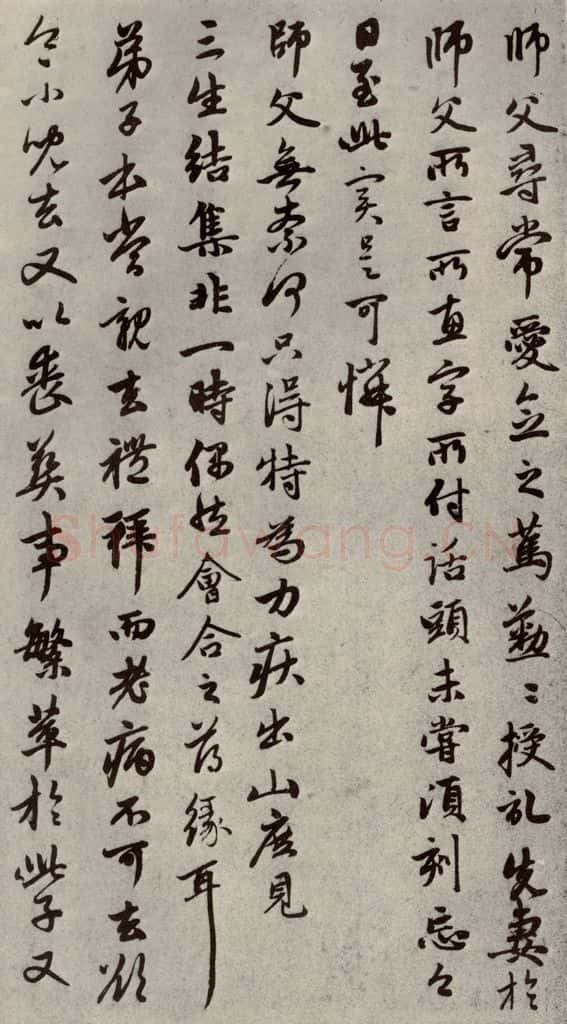 師父尋常愛念之篤勤勤授記先妻於
師父所言所直字所付話頭未嘗須刻忘今
日至此實是可憐
師父無奈何只得特為力疾出山庶見
三生結集非一時偶然會合之薄緣耳
弟子本當親去禮拜而老病不可去欲
令小兒去又以喪葬事繁萃於此子又
Shufawang.CN